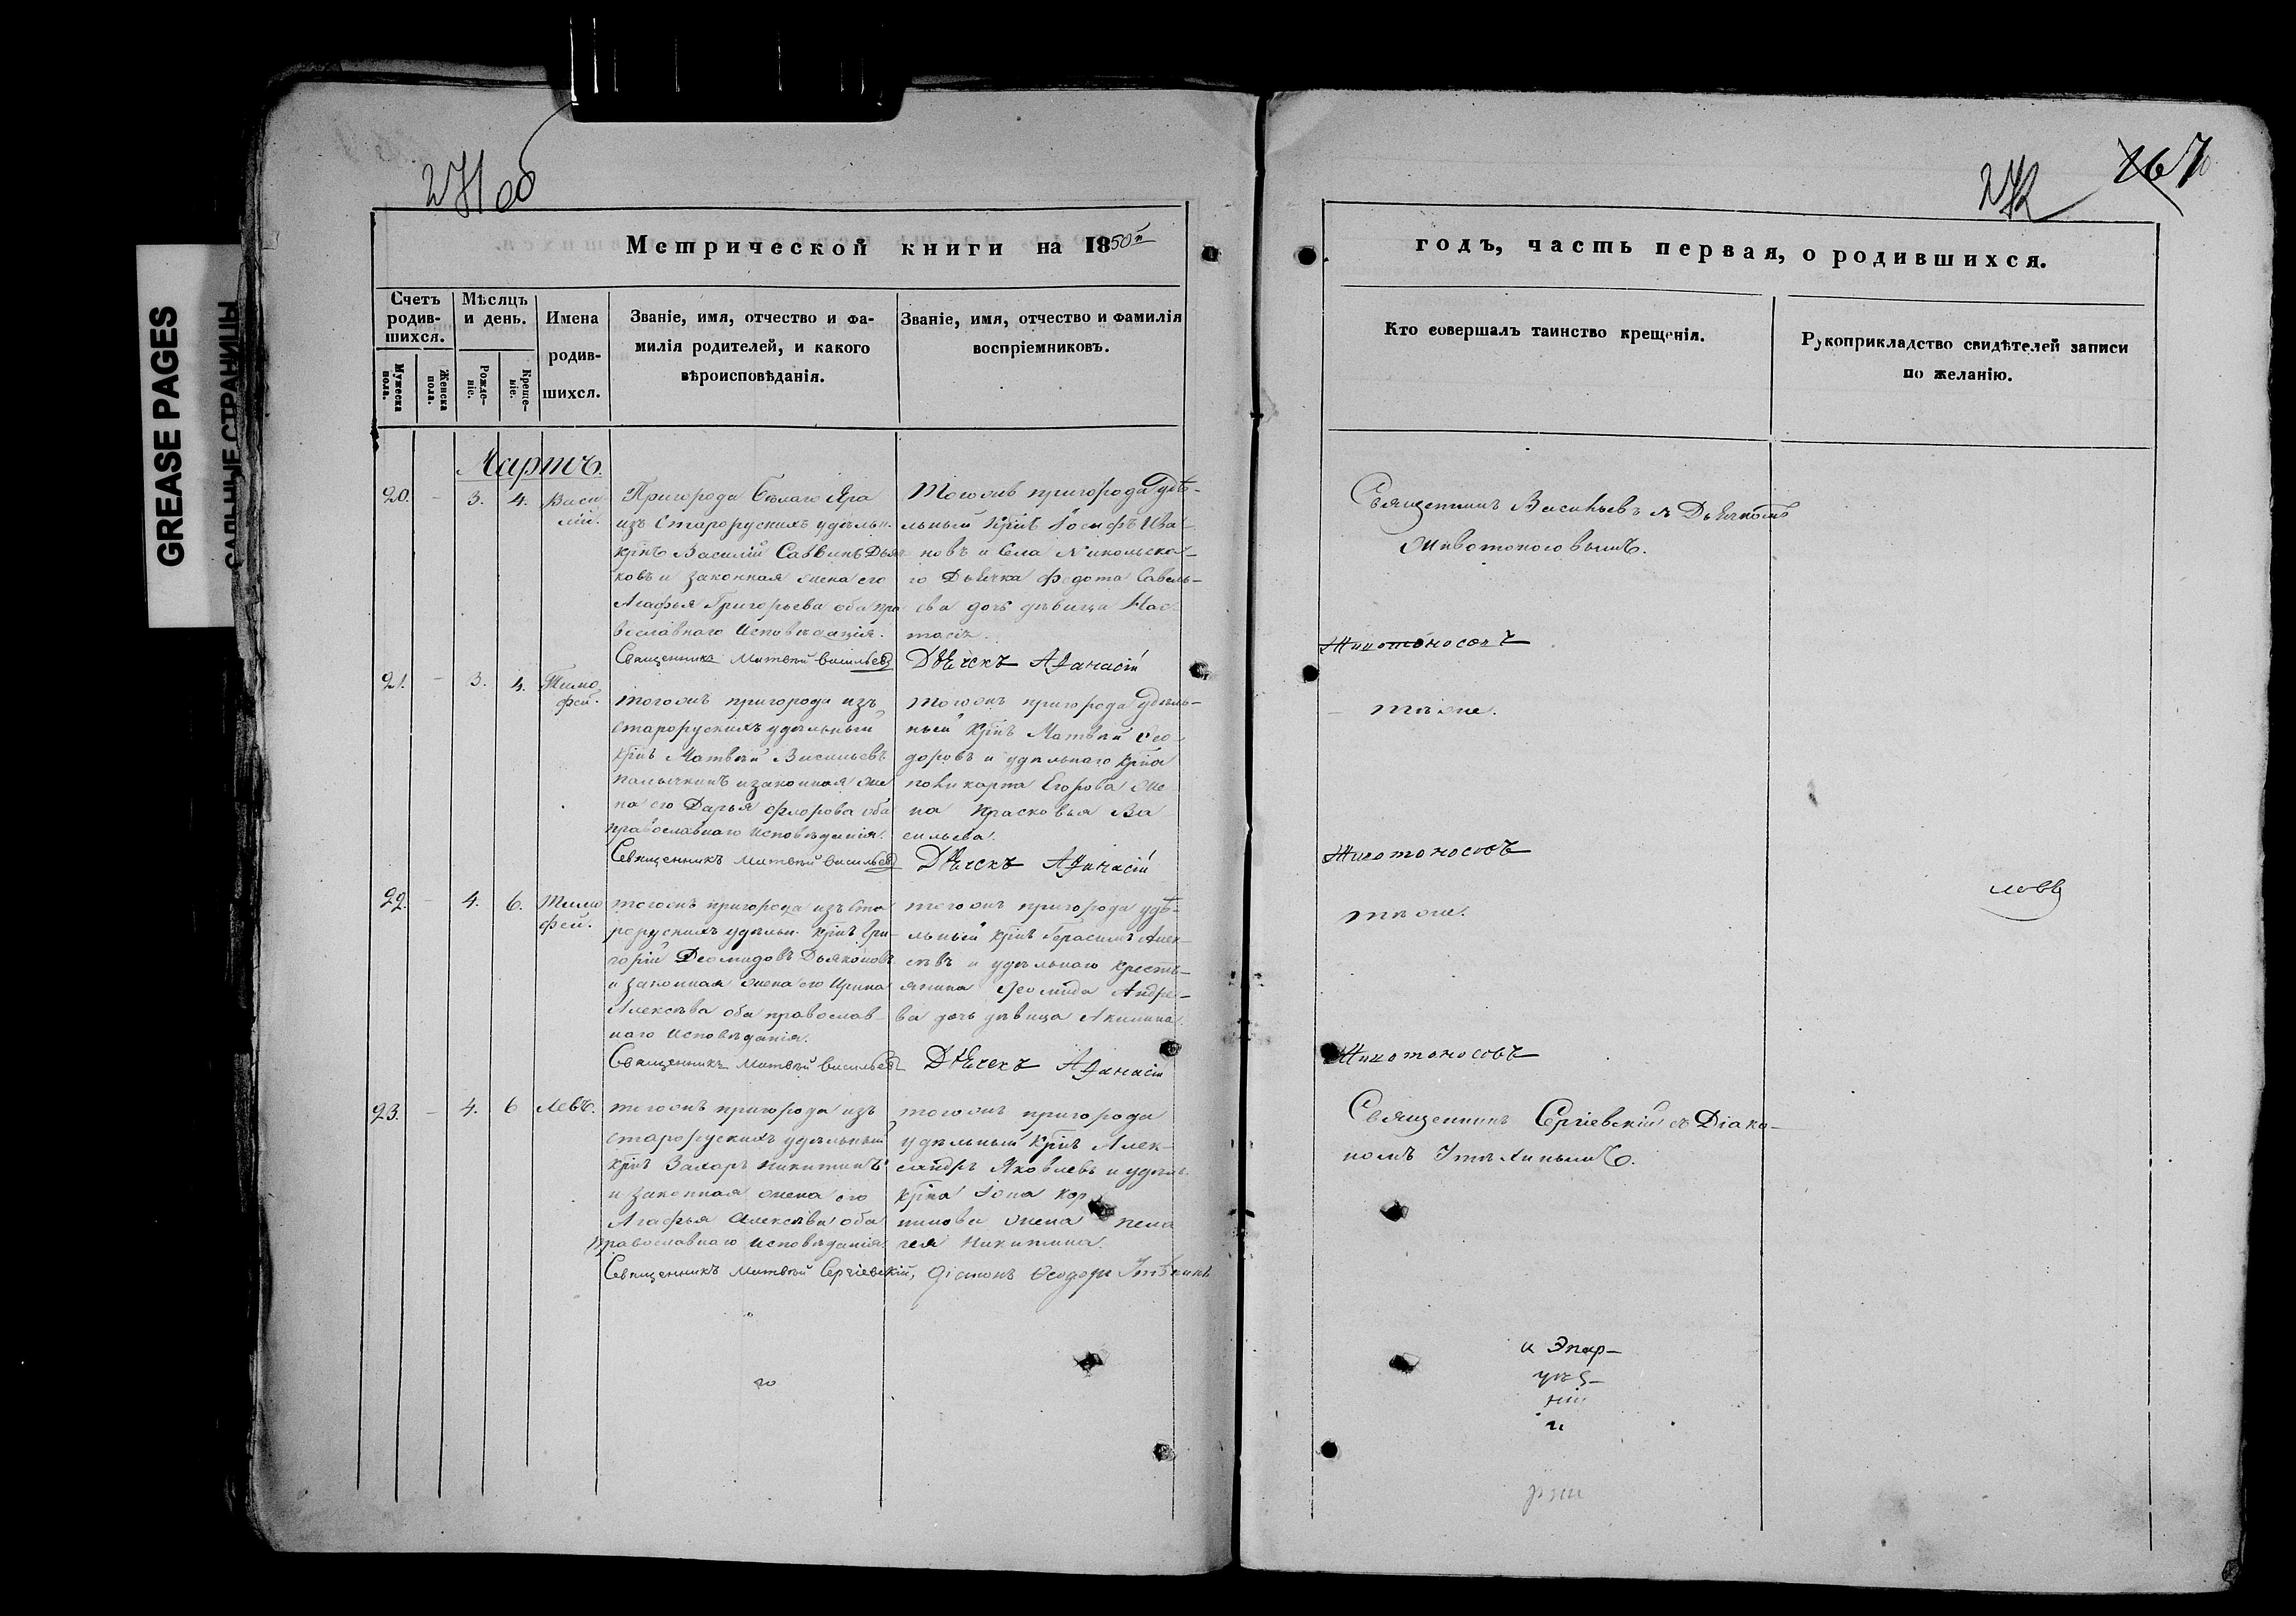 GREASE PAGES
САЛЬНЫЕ СТРАНИЦЫ
271 об
272
267
Метрической книги на 1850й
годъ, часть первая, о родившихся.
Счетъ родив-шихся.
Мужеска пола.
Женска пола.
Мѣсяцъ и день.
Рожде-ніе.
Креще-ніе.
Имена
родив-
шихся.
Званіе, имя, отчество и фа-
милія родителей, и какого
вѣроисповѣданія.
Званіе, имя, отчество и фамилія
воспріемниковъ.
Кто совершалъ таинство крещенія.
Рукоприкладство свидѣтелей записи
по желанію.
Мартъ.
20. - 3. 4. Васи-
лій.
Пригорода Бѣлаго Яра
изъ Старорускихъ удѣльн.
крнъ Василій Саввинъ Дьяч
ковъ и законная жена его
Агафья Григорьева оба пра
вославнаго Исповѣданія.
Священникъ Матвѣй Васильевъ
Тогожъ пригорода удѣ-
льный крнъ Іосифъ Ива-
новъ и Села Никольска-
го Дьячка Федота Савель-
ева дочь дѣвица Нас-
тасія.
Дьячекъ Афанасій
Священникъ Васильевъ съ Дьячкомъ
Животоносовымъ.
Животоносовъ
21. - 3. 4. Тимо
фей.
тогожъ пригорода изъ
старорускихъ удѣльный
крнъ Матвѣй Васильевъ
Палычкинъ и законная же
на его Дарья Флорова оба
православнаго Исповѣданія.
Священникъ Матвѣй Васильевъ
тогожъ пригорода удѣль-
ный крнъ Матвѣй Ѳео-
доровъ и удѣльнаго крна
Поликарпа Егорова же
на Прасковья Ва
сильева.
Дьячекъ Афанасій
тѣ же.
Животоносовъ
22. - 4. 6. Тимо
фей.
тогожъ пригорода изъ Ста
рорускихъ удѣльн. крнъ Гри-
горій Деомидовъ Дьяконовъ
и законная жена его Ирина
Алексѣева оба православ-
наго Исповѣданія.
Священникъ Матвѣй Васильевъ
тогожъ пригорода удѣ-
льный крнъ Герасимъ Алек-
сѣевъ и удѣльнаго Кресть-
янина Деомида Андре-
ва дочь дѣвица Акилина.
Дьячекъ Афанасій
тѣ же.
Животоносовъ
ловъ
23. - 4. 6 Левъ.
тогожъ пригорода изъ
старорускихъ удѣльный
крнъ Захаръ Никитинъ
и законная жена его
Агафья Алексѣва оба
православнаго исповѣданія.
Священникъ Матвѣй Сергіевскій,
тогожъ пригорода
удѣльный крнъ Алек-
сандръ Яковлевъ и удѣль.
крна Іона Кор
нилова жена Пела
гея Никитина.
Діаконъ Ѳеодоръ
Священникъ Сергіевскій съ Діако-
номъ